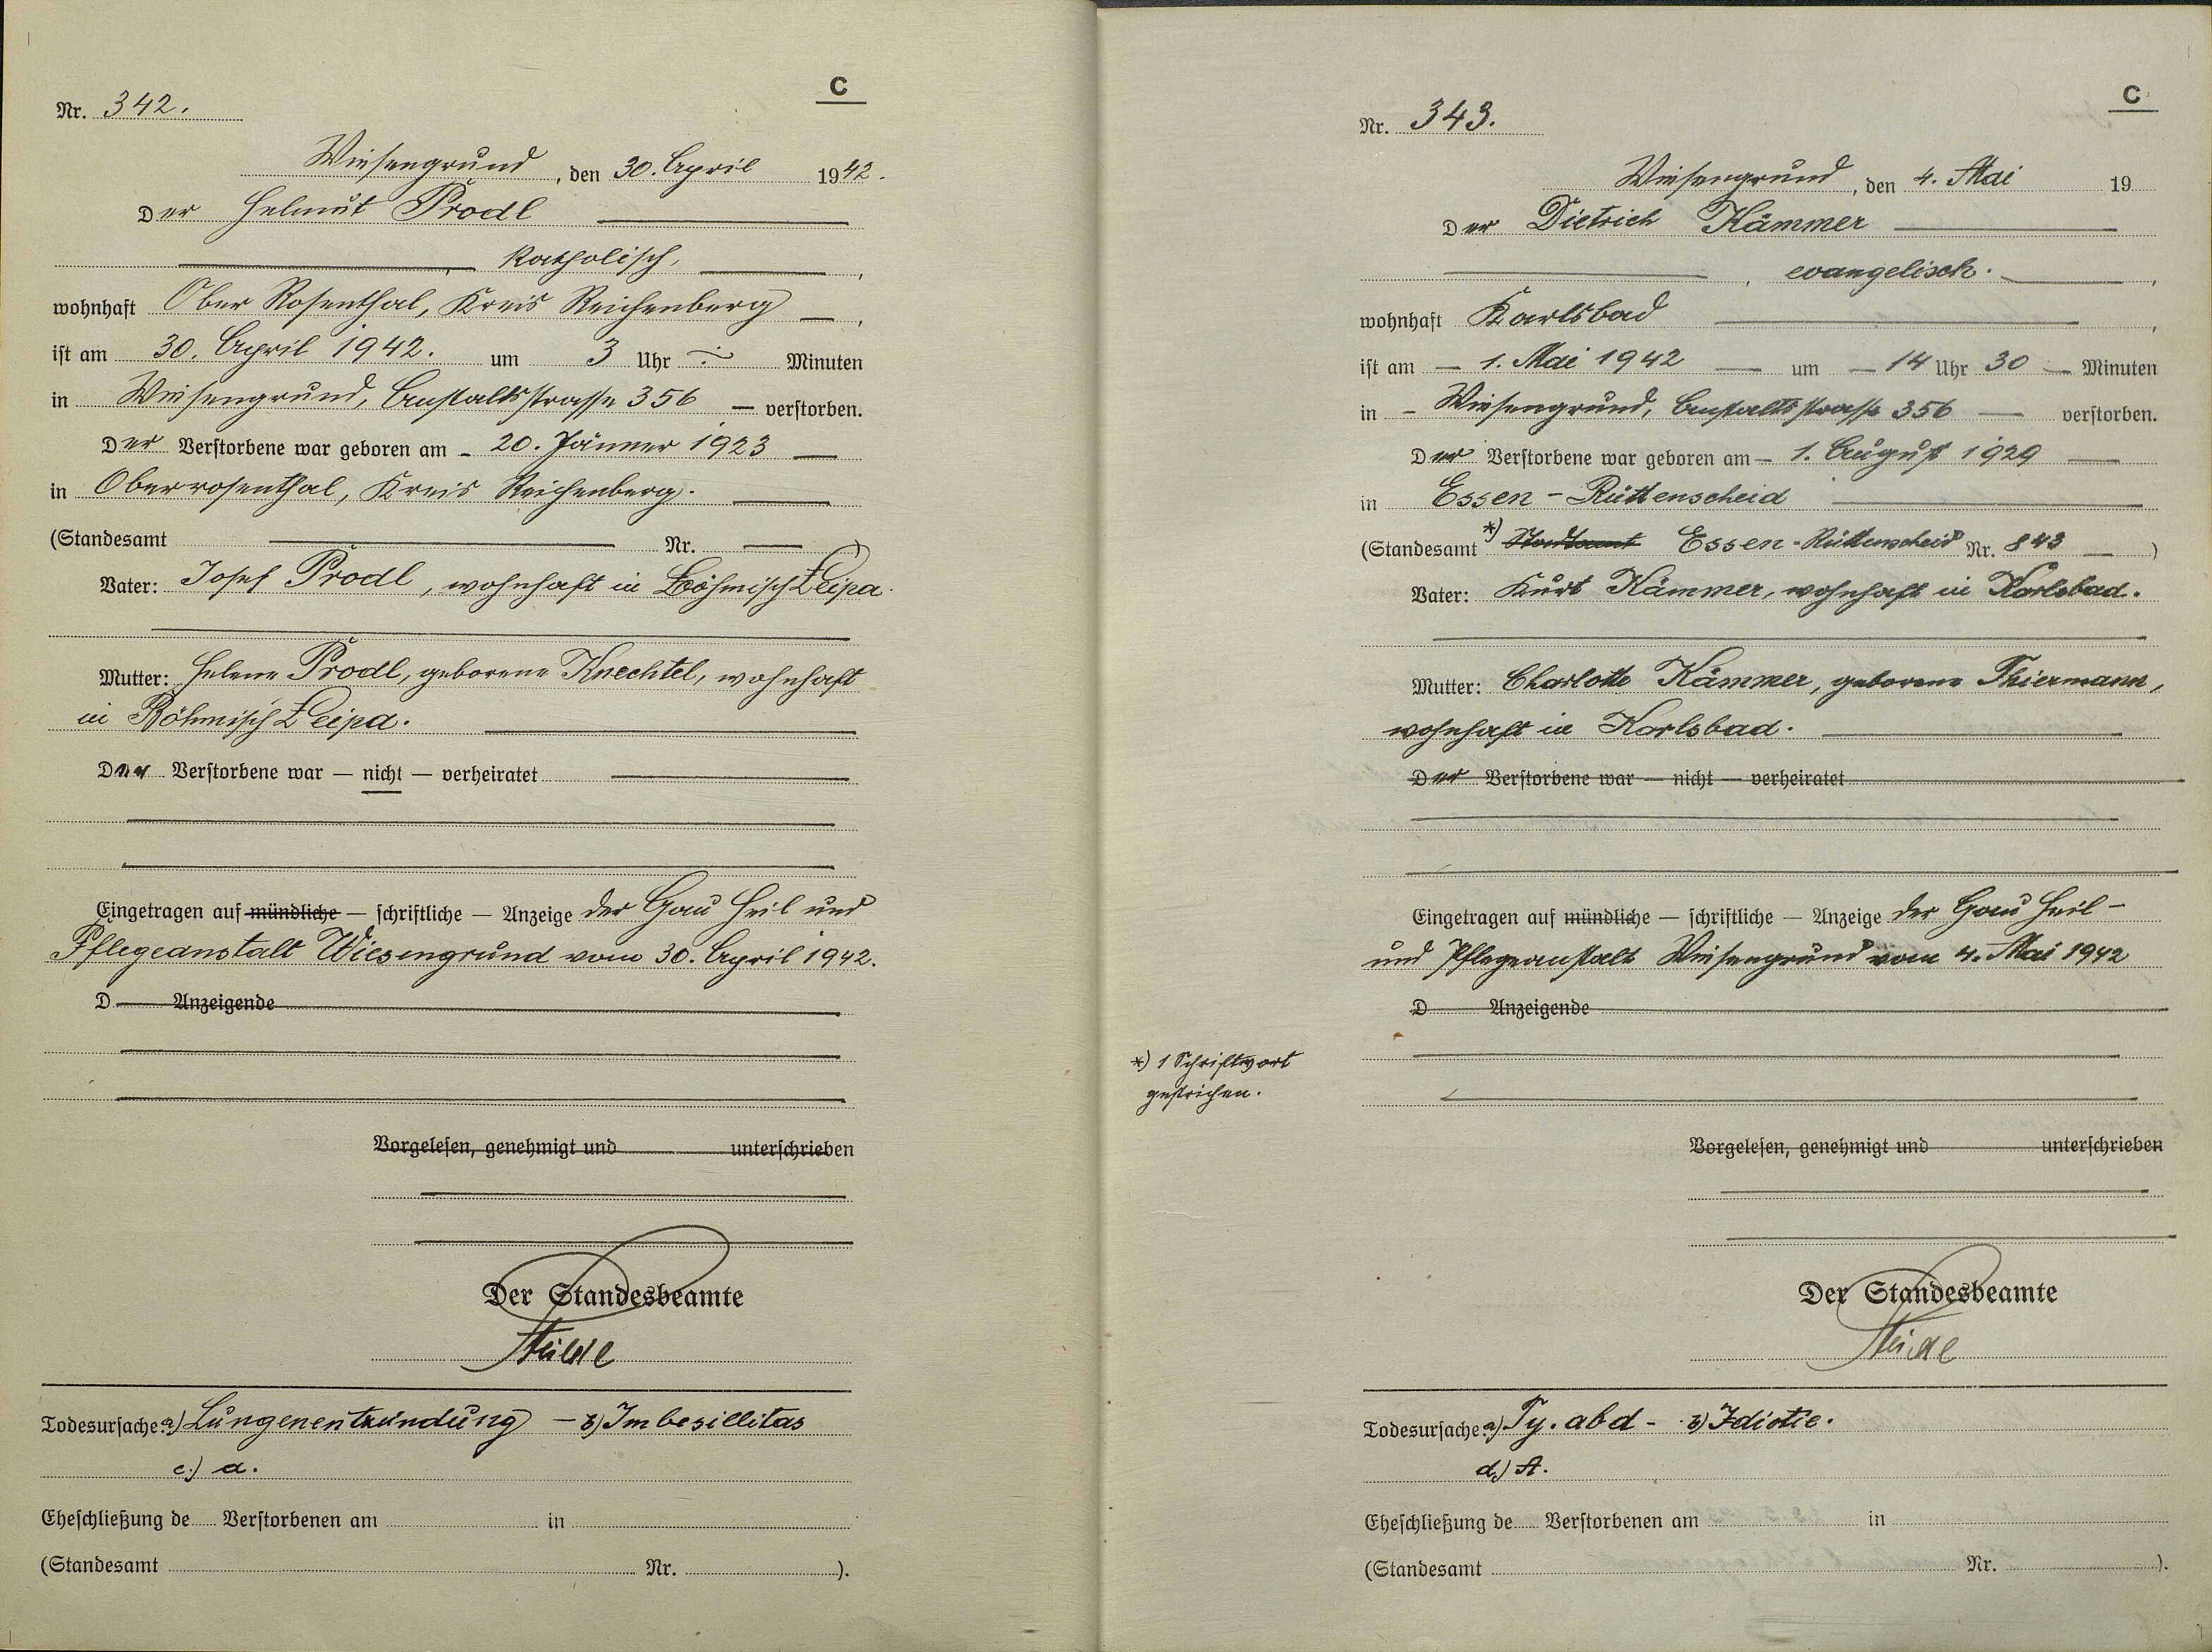 C
Nr. 342.
Wiesengrund, den 30. April 1942.
Der Helmut Prodl
katholisch,
wohnhaft Ober Rosenthal, Kreis Reichenberg,
ist am 30. April 1942. um 3 Uhr Minuten
in Wiesengrund, Anstaltsstrasse 356 — verstorben.
Der Verstorbene war geboren am - 20. Jänner 1923 —
in Oberrosenthal, Kreis Reichenberg.
(Standesamt Nr. )
Vater: Josef Prodl, wohnhaft in Böhmisch Leipa.
Mutter: Helene Prodl, geborene Knechtel, wohnhaft
in Böhmisch Leipa.
Der Verstorbene war — nicht — verheiratet
Eingetragen auf mündliche — schriftliche — Anzeige der Gau Heil und
Pflegeanstalt Wiesengrund vom 30. April 1942.
D Anzeigende
Vorgelesen, genehmigt und unterschrieben
Der Standesbeamte
Todesursache: a) Lungenentzündung — b) Imbesillitas
c.) a.
Eheschließung de Verstorbenen am in
(Standesamt Nr. ).
C
Nr. 343.
Wiesengrund, den 4. Mai 19
Der Dietrich Kämmer
, evangelisch. ,
wohnhaft Karlsbad ,
ist am — 1. Mai 1942 — um — 14 Uhr 30 — Minuten
in - Wiesengrund, Anstaltsstrasse 356 — verstorben.
Der Verstorbene war geboren am — 1. August 1929 —
in Essen - Rüttenscheid
(Standesamt *) Essen - Rüttenscheid Nr. 843 — )
Vater: Kurt Kämmer, wohnhaft in Karlsbad.
Mutter: Charlotte Kämmer, geborene Thiermann,
wohnhaft in Karlsbad.
Der Verstorbene war — nicht — verheiratet
Eingetragen auf mündliche — schriftliche — Anzeige der Gau Heil -
und Pflegeanstalt Wiesengrund vom 4. Mai 1942
D Anzeigende
*) 1 Schriftwort
gestrichen.
Vorgelesen, genehmigt und unterschrieben
Der Standesbeamte
Todesursache: a) Ty. abd - b) Idiotie.
d.) A.
Eheschließung de Verstorbenen am in
(Standesamt Nr. ).